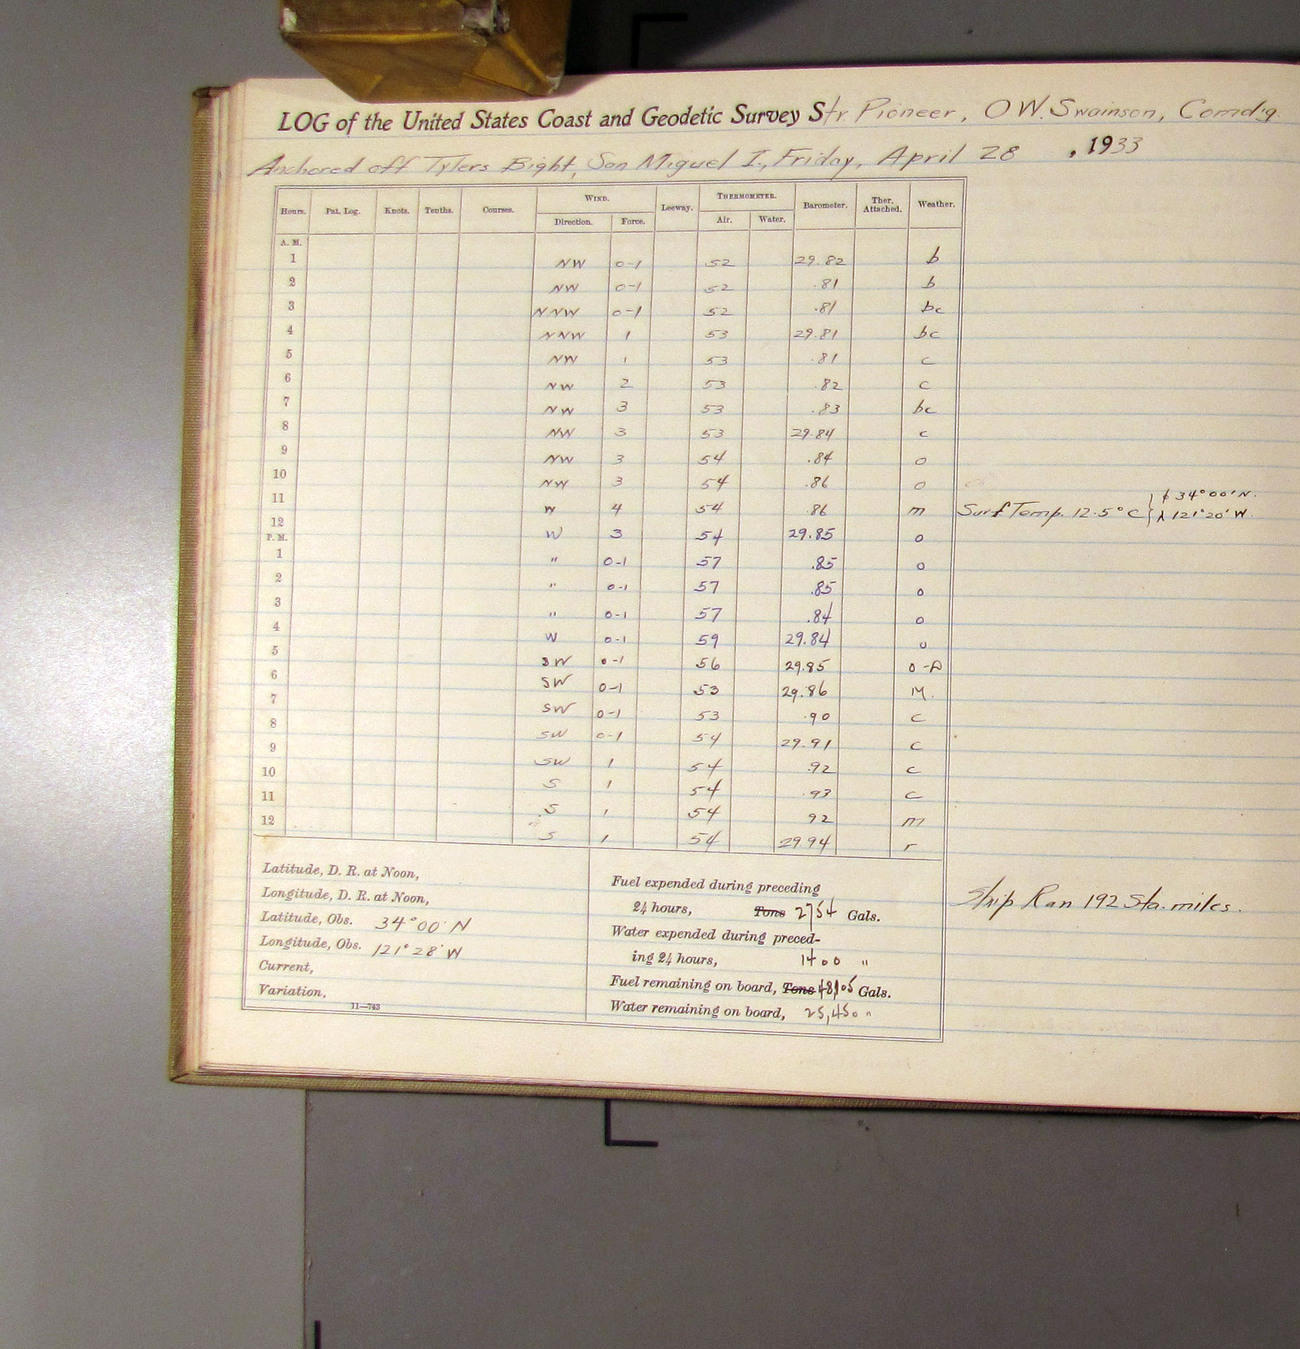 LOG of the United States Coast and Geodetic Survey Str. Pioneer, O.W. Swainson, Comd'g.
Anchored off Tylers Bight, San Miguel I., Friday, April 28, 1933
Hours. Pat. Log. Knots. Tenths. Courses. WIND. Leeway. THERMOMETER. Barometer. Ther. Attached. Weather.
Direction. Force. Air. Water.
A. M.
1 NW 0-1 52 29.82 b
2 NW 0-1 52 .81 b
3 NNW 0-1 52 .81 bc
4 NNW 1 53 29.81 bc
5 NW 1 53 .81 c
6 NW 2 53 .82 c
7 NW 3 53 .83 bc
8 NW 3 53 29.84 c
9 NW 3 54 .84 o
10 NW 3 54 .86 o
11 W 4 54 86 m Surf Temp. 12.5° C { φ 34° 00' N. λ 121° 20' W.
12 W 3 54 29.85 o
P. M.
1 " 0-1 57 .85 o
2 " 0-1 57 .85 o
3 " 0-1 57 .84 o
4 W 0-1 59 29.84 o
5 SW 0-1 56 29.85 o
6 SW 0-1 53 29.86 M.
7 SW 0-1 53 .90 c
8 SW 0-1 54 29.91 c
9 SW 1 54 .92 c
10 S 1 54 .93 c
11 S 1 54 92 m
12 S 1 54 29 94 r
Latitude, D. R. at Noon,
Longitude, D. R. at Noon,
Latitude, Obs. 34° 00' N
Longitude, Obs. 121° 28' W
Current,
Variation,
11—743
Fuel expended during preceding
24 hours, Tons 2754 Gals.
Water expended during preced-
ing 24 hours, 1400 "
Fuel remaining on board, Tons Gals.
Water remaining on board, 25,450 "
Ship Ran 192 Sta. miles.